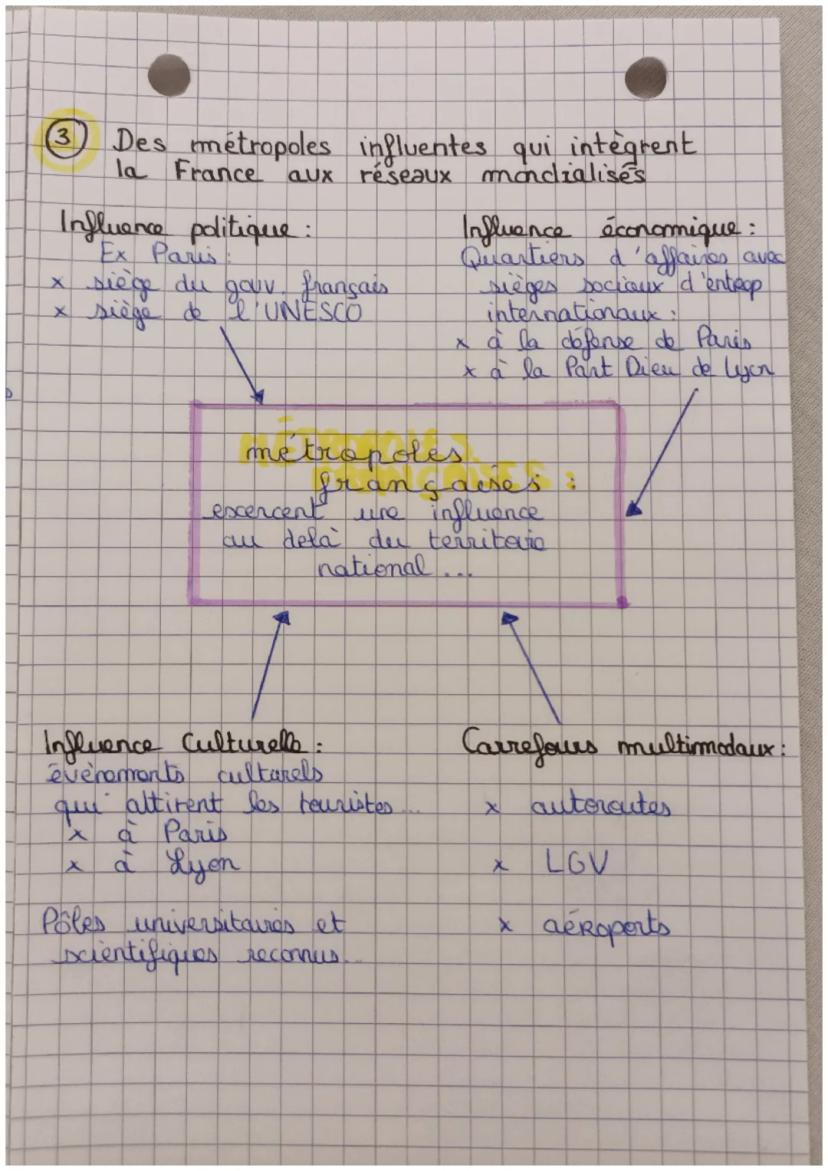 3 Des métropoles influentes qui intègrent
la France aux réseaux mondialisés
Influence politique :
Ex Paris :
x siège du gouv. français
x siège de l'UNESCO
Influence économique :
Quartiers d'affaires avec
sièges sociaux d'entrep
internationaux :
x à la défense de Paris
x à la Part Dieu de Lyon
métropoles
françaises :
excercent une influence
au delà du territoire
national ...
Influence Culturelle :
évènements culturels
qui attirent les touristes ...
x à Paris
x à Lyon
Pôles universitaires et
scientifiques reconnus ...
Carrefours multimodaux :
x autoroutes
x LGV
x aéroports